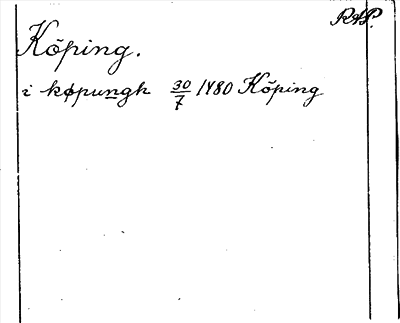 RAP.
Köping.
i køpungh 30/7 1480 Köping